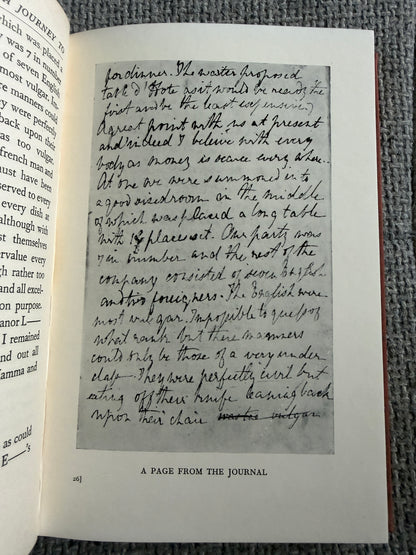 A JOURNEY TO
which was placed a
y was 7 in number
of seven English
most vulgar. Im-
eir manners could
ey were perfectly
back upon their
was too vulgar.
french man and
must have been
served to every
every dish at
although with
st themselves
vervalue every
gh rather too
and all excel-
on purpose.
anor L—
I remained
and out all
Mamma and
as could
E—'s
for dinner. The waiter proposed
table d'Hote as it would be ready the
first and be the least expensive
A great point with us at present
and indeed I beleive with every
body as money is scarce every where.
At one we were summoned into
a good sized room in the middle
of which was placed a long table
with 18 places set. Our party was
7 in number and the rest of the
company consisted of seven English
and two foreigners. The English were
most vulgar. Impossible to guess of
what rank but there manners
could only be those of a very under
class. They were perfectly civil but
eating off their knife leaning back
upon their chair was too vulgar
A PAGE FROM THE JOURNAL
26]